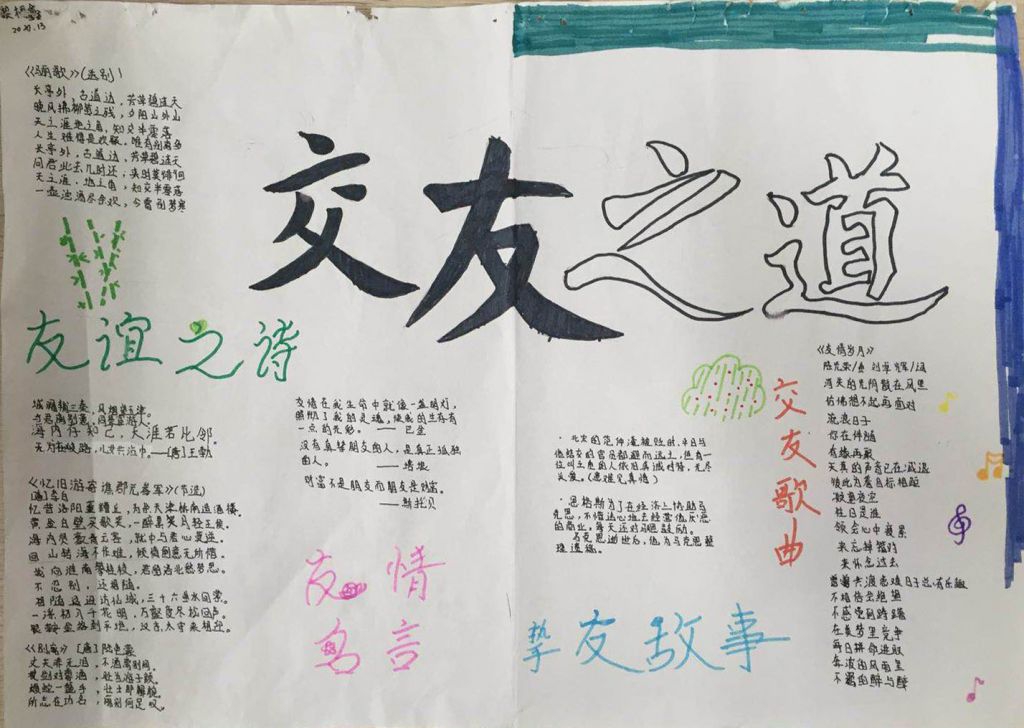 《骊歌》(送别)
长亭外，古道边，芳草碧连天
晚风拂柳笛声残，夕阳山外山
天之涯地之角，知交半零落
人生难得是欢聚。唯有别离多
长亭外，古道边，芳草碧连天
问君此去几时还，来时莫徘徊
天之涯，地之角，知交半零落
一壶浊酒尽余欢，今宵别梦寒
交友之道
友谊之诗
城阙辅三秦，风烟望五津。
与君离别意，同是宦游人。
海内存知己，天涯若比邻。
无为在歧路，儿女共沾巾。——[唐]王勃
《忆旧游寄谯郡元参军》(节选)
[唐]李白
忆昔洛阳董糟丘，为余天津桥南造酒楼。
黄金白璧买歌笑，一醉累月轻王侯。
海内贤豪青云客，就中与君心莫逆。
回山转海不作难，倾情倒意无所惜。
我向淮南攀桂枝，君留洛北愁梦思。
不忍别，还相随。
相随迢迢访仙城，三十六曲水回萦。
一溪初入千花明，万壑度尽松风声。
银鞍金络到平地，汉东太守来相迎。
《别离》[唐]陆龟蒙
丈夫非无泪，不洒离别间。
仗剑对尊酒，耻为游子颜。
蝮蛇一螫手，壮士即解腕。
所志在功名，离别何足叹。
友情在我生命中就像一盏明灯，
照彻了我的灵魂，使我的生存有
一点的光彩。——巴金
没有真挚朋友的人，是真正孤独
的人。——培根
财富不是朋友而朋友是财富。
——斯托贝
友情
名言
·
他结交的官员都避而远之，但有一
恩格斯为了在经济上协助马
克思，不惜违心地去经营他厌恶
的商业，每天还对马恩鼓励
马克思逝世后，他为马克思整
理遗稿。
挚友故事
交友歌曲
《友情岁月》
陈光荣/曲 刘卓辉/词
消失的光阴散在风里
仿佛想不起再面对
流浪日子
你在伴随
有缘再聚
天真的声音已在减退
彼此为着目标相距
凝望夜空
往日是谁
领会心中疲累
来忘掉错对
来怀念过去
曾共渡患难日子总有乐趣
不相信会绝望
不感觉到踌躇
在美梦里竞争
每日拼命进取
奔波的风雨里
不羁的醒与醉